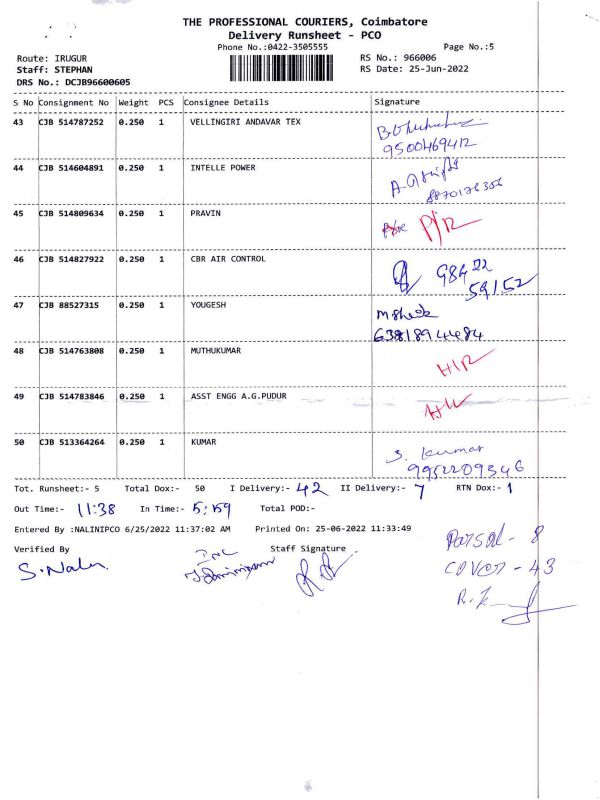 THE PROFESSIONAL COURIERS, Coimbatore
Delivery Runsheet - PCO
Phone No.:0422-3505555 Page No.:5
Route: IRUGUR RS No.: 966006
Staff: STEPHAN RS Date: 25-Jun-2022
DRS No.: DCJB96600605
S No Consignment No Weight PCS Consignee Details Signature
43 CJB 514787252 0.250 1 VELLINGIRI ANDAVAR TEX
9500469412
44 CJB 514604891 0.250 1 INTELLE POWER
8870176356
45 CJB 514809634 0.250 1 PRAVIN P/R
46 CJB 514827922 0.250 1 CBR AIR CONTROL 98422
59152
47 CJB 88527315 0.250 1 YOUGESH
6381894484
48 CJB 514763808 0.250 1 MUTHUKUMAR
49 CJB 514783846 0.250 1 ASST ENGG A.G.PUDUR
50 CJB 513364264 0.250 1 KUMAR S. Kumar
9952209346
Tot. Runsheet:- 5 Total Dox:- 50 I Delivery:- 42 II Delivery:- 7 RTN Dox:- 1
Out Time:- 11:38 In Time:- 5:59 Total POD:-
Entered By :NALINIPCO 6/25/2022 11:37:02 AM Printed On: 25-06-2022 11:33:49
Verified By Staff Signature
Parsal - 8
COVER - 43